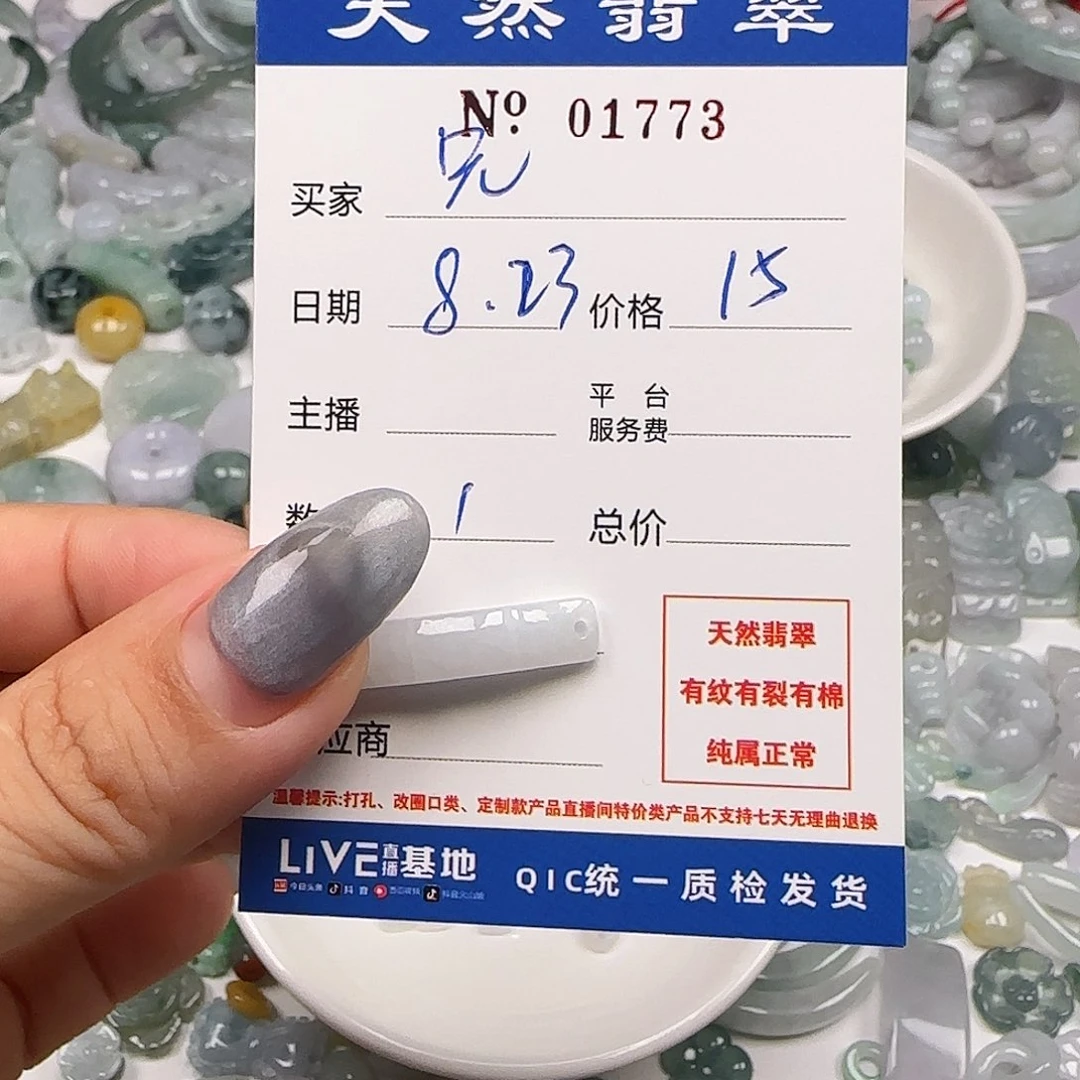 天然翡翠
No. 01773
买家 完
日期 8.23 价格 15
主播 平台服务费
数 1 总价
应商
天然翡翠
有纹有裂有棉
纯属正常
温馨提示:打孔、改圈口类、定制款产品直播间特价类产品不支持七天无理由退换
LIVE直播基地 QIC统一质检发货
今日头条 抖音 西瓜视频 抖音火山版